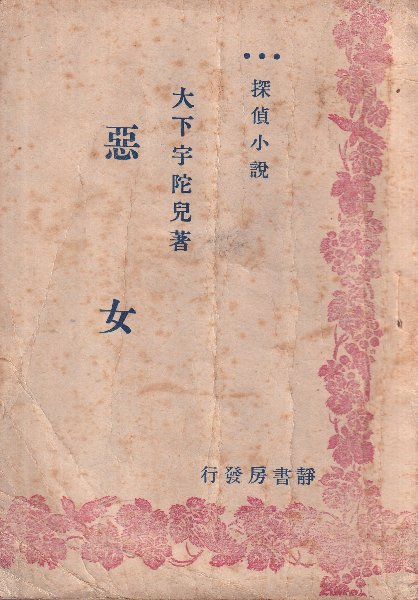 探偵小說
大下宇陀兒著
惡女
靜書房發行